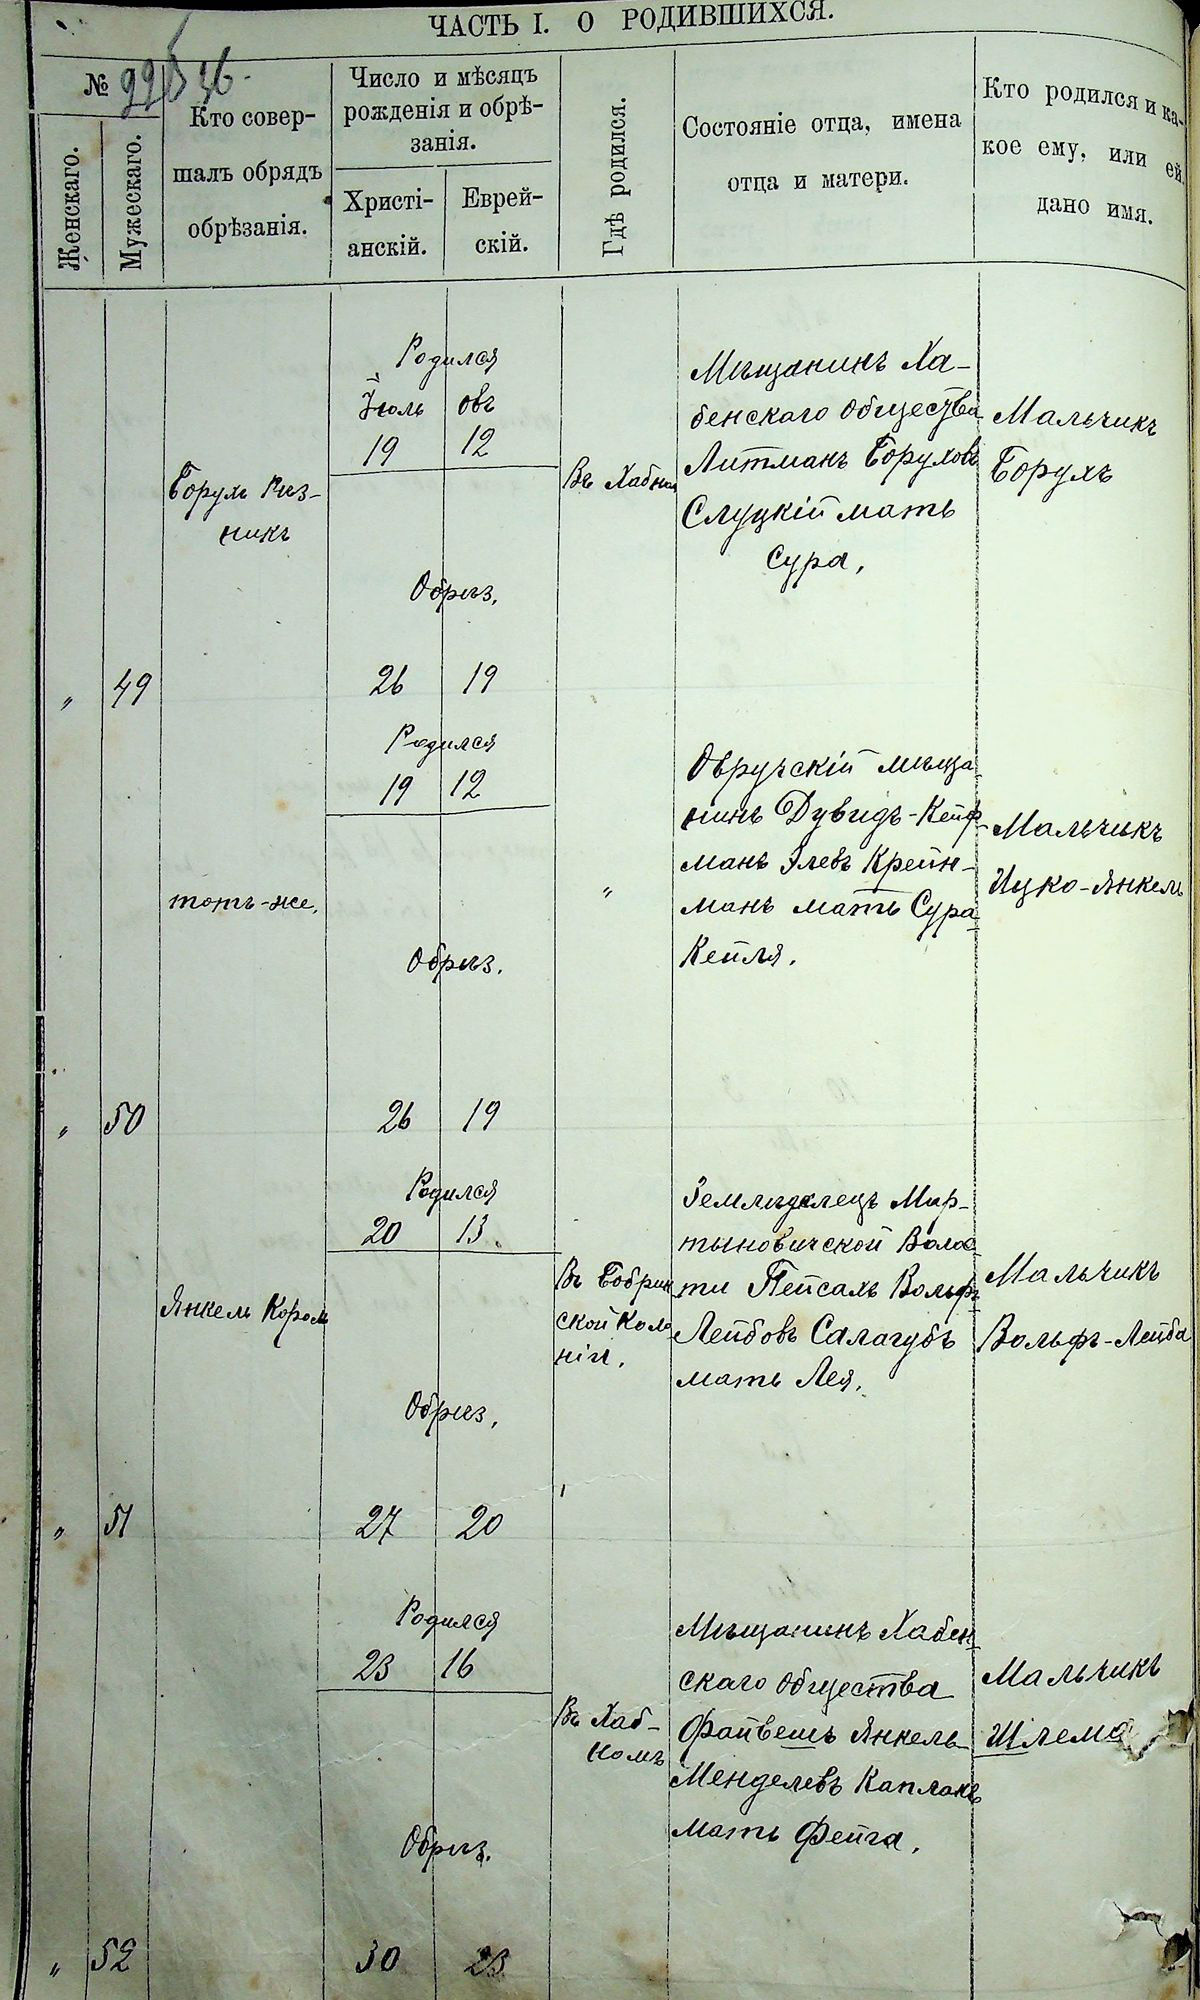 ЧАСТЬ I. О РОДИВШИХСЯ.
№
Женскаго.
Мужескаго.
Кто совер-
шалъ обрядъ
обрѣзанія.
Число и мѣсяцъ
рожденія и обрѣ-
занія.
Христі-
анскій.
Еврей-
скій.
Гдѣ родился.
Состояніе отца, имена
отца и матери.
Кто родился и ка-
кое ему, или ей
дано имя.
„ 49
Борухъ Рѣз-
никъ
Родился
Іюль овъ
19 12
Обрѣз.
26 19
Въ Хабном
Мѣщанинъ Ха-
бенскаго общества
Литманъ Боруховъ
Слуцкій мать
Сура.
Мальчикъ
Борухъ
„ 50
тотъ-же.
Родился
19 12
Обрѣз.
26 19
„
Овручскій мѣща-
нинъ Дувидъ-Кейф-
манъ Элевъ Крейн-
манъ мать Сура-
Кейля.
Мальчикъ
Ицко-Янкель
„ 51
Янкель Король
Родился
20 13.
Обрѣз.
27 20
Въ Бобрин
ской Коло
ніи.
Земледѣлецъ Мар-
тыновичской Волос-
ти Пейсахъ Вольфъ
Лейбовъ Салагубъ
мать Лея.
Мальчикъ
Вольфъ-Лейба
„ 52
Родился
23 16
Обрѣз.
30 23
Въ Хаб-
номъ
Мѣщанинъ Хабен-
скаго общества
Файвешъ Янкель-
Менделевъ Капланъ
мать Фейга.
Мальчикъ
Шлема